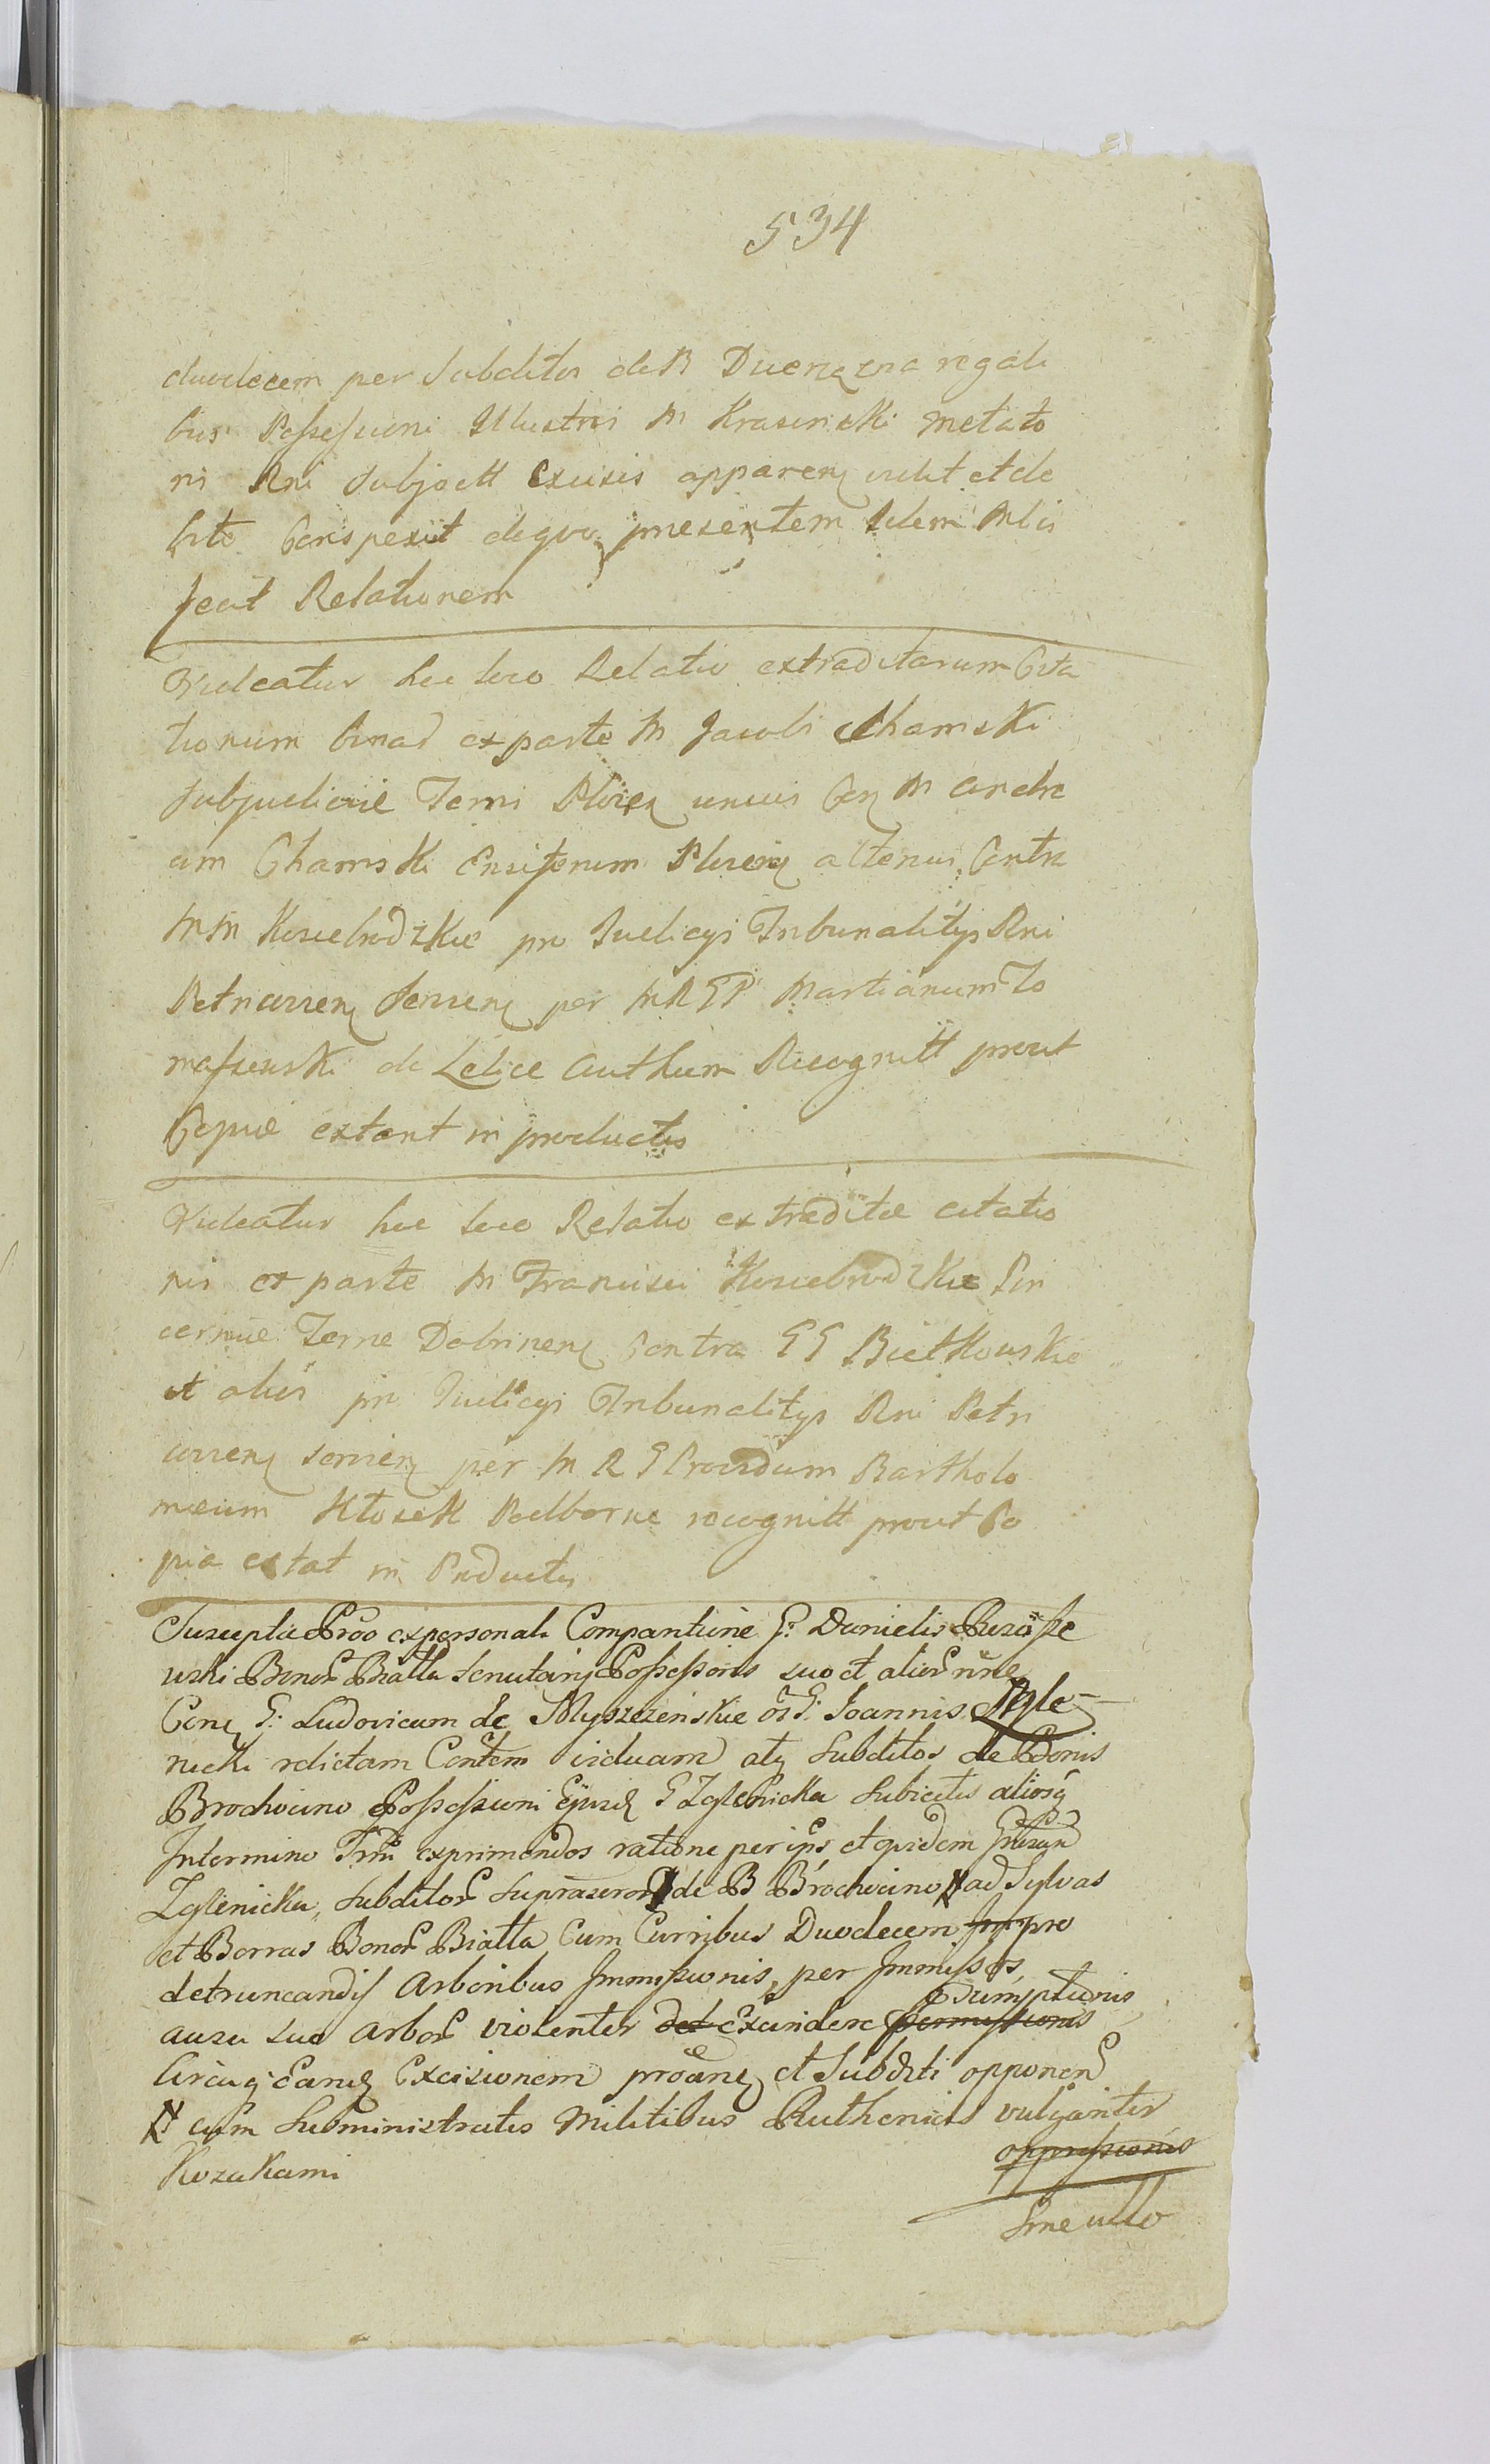 534
duodecem per Subditos de B Duerzezna regali
bus Possessioni Illustris M Krasinski metato
ris Rni Subject Excisis apparen vidit et de
bite Conspexit de quo presentem idem Mlis
fecit Relationem
Videatur hic loco Relatio extraditarum Cita
tionum binar ex parte M Jacobi Chamski
Subjudicie Terris Plocen unius Con M Andre
am Chamski Ensiferum Plocen alterius Contra
M M Kosciebrodzkie pro Judicijs Tribunalitijs Rni
Petricovien Servien per M R G P Martianum To
maszewski de Lelice Authum Recognitt prout
Copiæ extant in productis
Videatur hic loco Relatio extraditæ citatio
nis ex parte M Francisci Kosciebrodzkie Pin
cernæ Terræ Dobrinen Contra G G Bietkowskie
et alios pro Judicijs Tribunalitijs Rni Petri
covien servien per M R G Providum Bartholo
mæum Kłosek Podborne recognitt prout Co
pia extat in Productis
Suscepta Proo ex personali Compantione G: Danielis Rusisze
wski Bonor Białła tenutarij Possessoris suo et alior nne
Con G: Ludovicam de Myszczenskie o G: Joannis Zgle-
nicki relictam Contem viduam atq Subditos de Bonis
Brochocino Possessioni Ejusd G Zglenicka Subiectos aliosq
In termino Trm exprimendos ratione per ips et quidem Gnosam
Zglenicka, Subditor Suprascror de B Brochocino N ad Sylvas
et Borras Bonor Białła Cum Curribus Duodecem Im pro
detruncandis Arboribus Immissionis, per Immissos
Præsumptionis
ausu suo arbor violenter det Excindere permissionis
Circaq Eand Excisionem proane et Subditi opponen
N cum Subministratis Militibus Ruthenicis vulgariter
Kozakami
oppressionis
Sine ullo